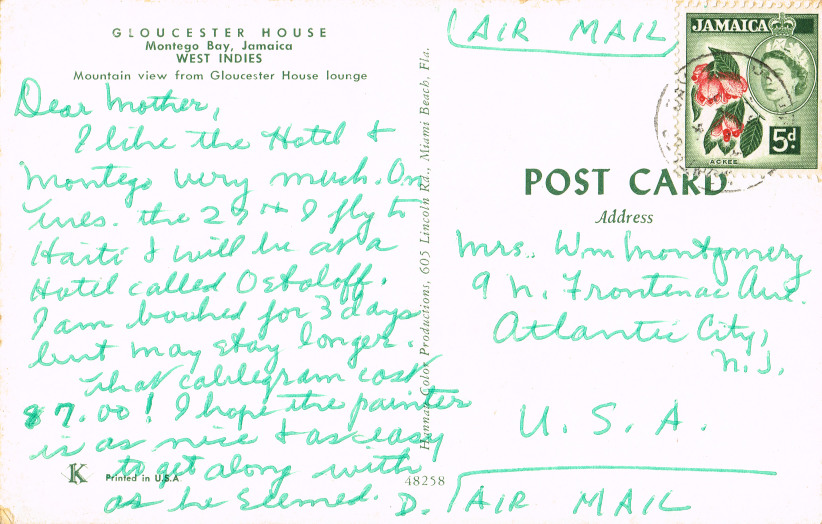 GLOUCESTER HOUSE
Montego Bay, Jamaica
WEST INDIES
Mountain view from Gloucester House lounge
Dear Mother,
I like the Hotel &
Montego very much. On
Wes. the 29th I fly to
Haiti & will be at a
Hotel called Ostoloff.
I am booked for 3 days
but may stay longer.
That cablegram cost
$7.00! I hope the painter
is as nice & as easy
to get along with
as he seemed. D.
K
Printed in U.S.A
48258
Hannau Color Productions, 605 Lincoln Rd., Miami Beach, Fla.
AIR MAIL
JAMAICA
ACKEE
5d.
POST CARD
Address
Mrs. Wm Montgomery
9 N. Frontenac Ave.
Atlantic City,
N.J.
U.S.A.
AIR MAIL